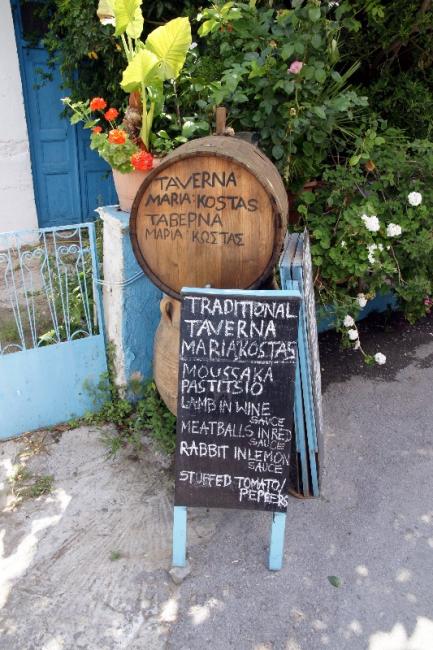 TAVERNA
MARIA·KOSTAS
ΤΑΒΕΡΝΑ
ΜΑΡΙΑ ΚΩΣΤΑΣ
TRADITIONAL
TAVERNA
MARIA'KOSTAS
MOUSSAKA
PASTITSIO
LAMB IN WINE
SAUCE
MEATBALLS IN RED
SAUCE
RABBIT IN LEMON
SAUCE
STUFFED TOMATO/
PEPPERS